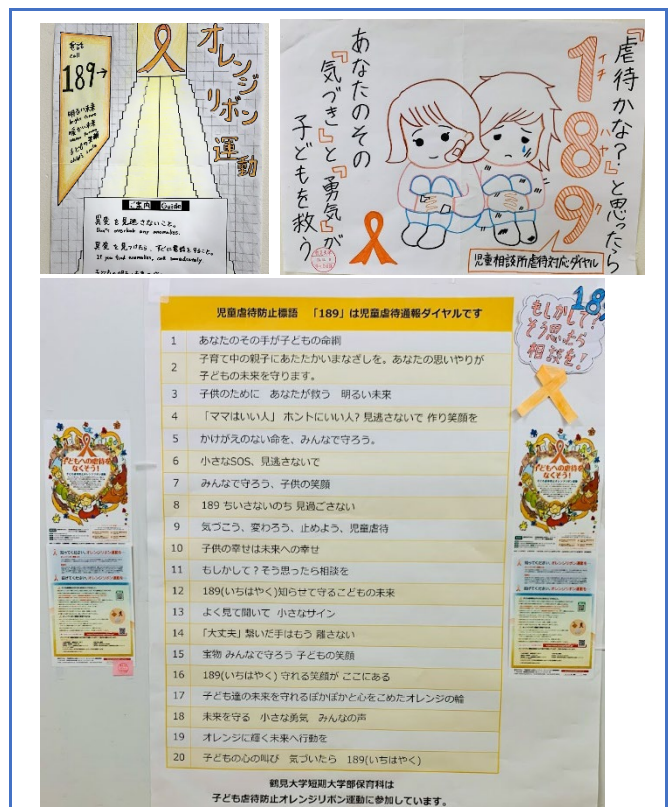 オレンジリボン運動
電話
call
189→
明るい未来
bright future
暖かい未来
子どもの笑顔
child's smile
ご案内 Guide
異変を見逃さないこと。
Don't overlook any anomalies.
異変を見つけたら、すぐに電話をすること。
If you find anomalies, call immediately
『虐待かな？』と思ったら
189
イチ ハヤ ク
あなたのその
『気づき』と『勇気』が
子どもを救う
児童相談所虐待対応ダイヤル
児童虐待防止標語 「189」は児童虐待通報ダイヤルです
1 あなたのその手が子どもの命綱
2 子育て中の親子にあたたかいまなざしを。あなたの思いやりが
子どもの未来を守ります。
3 子供のために あなたが救う 明るい未来
4 「ママはいい人」 ホントにいい人? 見逃さないで 作り笑顔を
5 かけがえのない命を、みんなで守ろう。
6 小さなSOS、見逃さないで
7 みんなで守ろう、子供の笑顔
8 189 ちいさないのち 見過ごさない
9 気づこう、変わろう、止めよう、児童虐待
10 子供の幸せは未来への幸せ
11 もしかして？そう思ったら相談を
12 189(いちはやく)知らせて守るこどもの未来
13 よく見て聞いて 小さなサイン
14 「大丈夫」繋いだ手はもう 離さない
15 宝物 みんなで守ろう 子どもの笑顔
16 189(いちはやく) 守れる笑顔が ここにある
17 子ども達の未来を守れるぽかぽかと心をこめたオレンジの輪
18 未来を守る 小さな勇気 みんなの声
19 オレンジに輝く未来へ行動を
20 子どもの心の叫び 気づいたら 189(いちはやく)
鶴見大学短期大学部保育科は
子ども虐待防止オレンジリボン運動に参加しています。
189
もしかして!
そう思ったら
相談を!
子どもへの虐待を
なくそう!
子どもへの虐待を
なくそう!